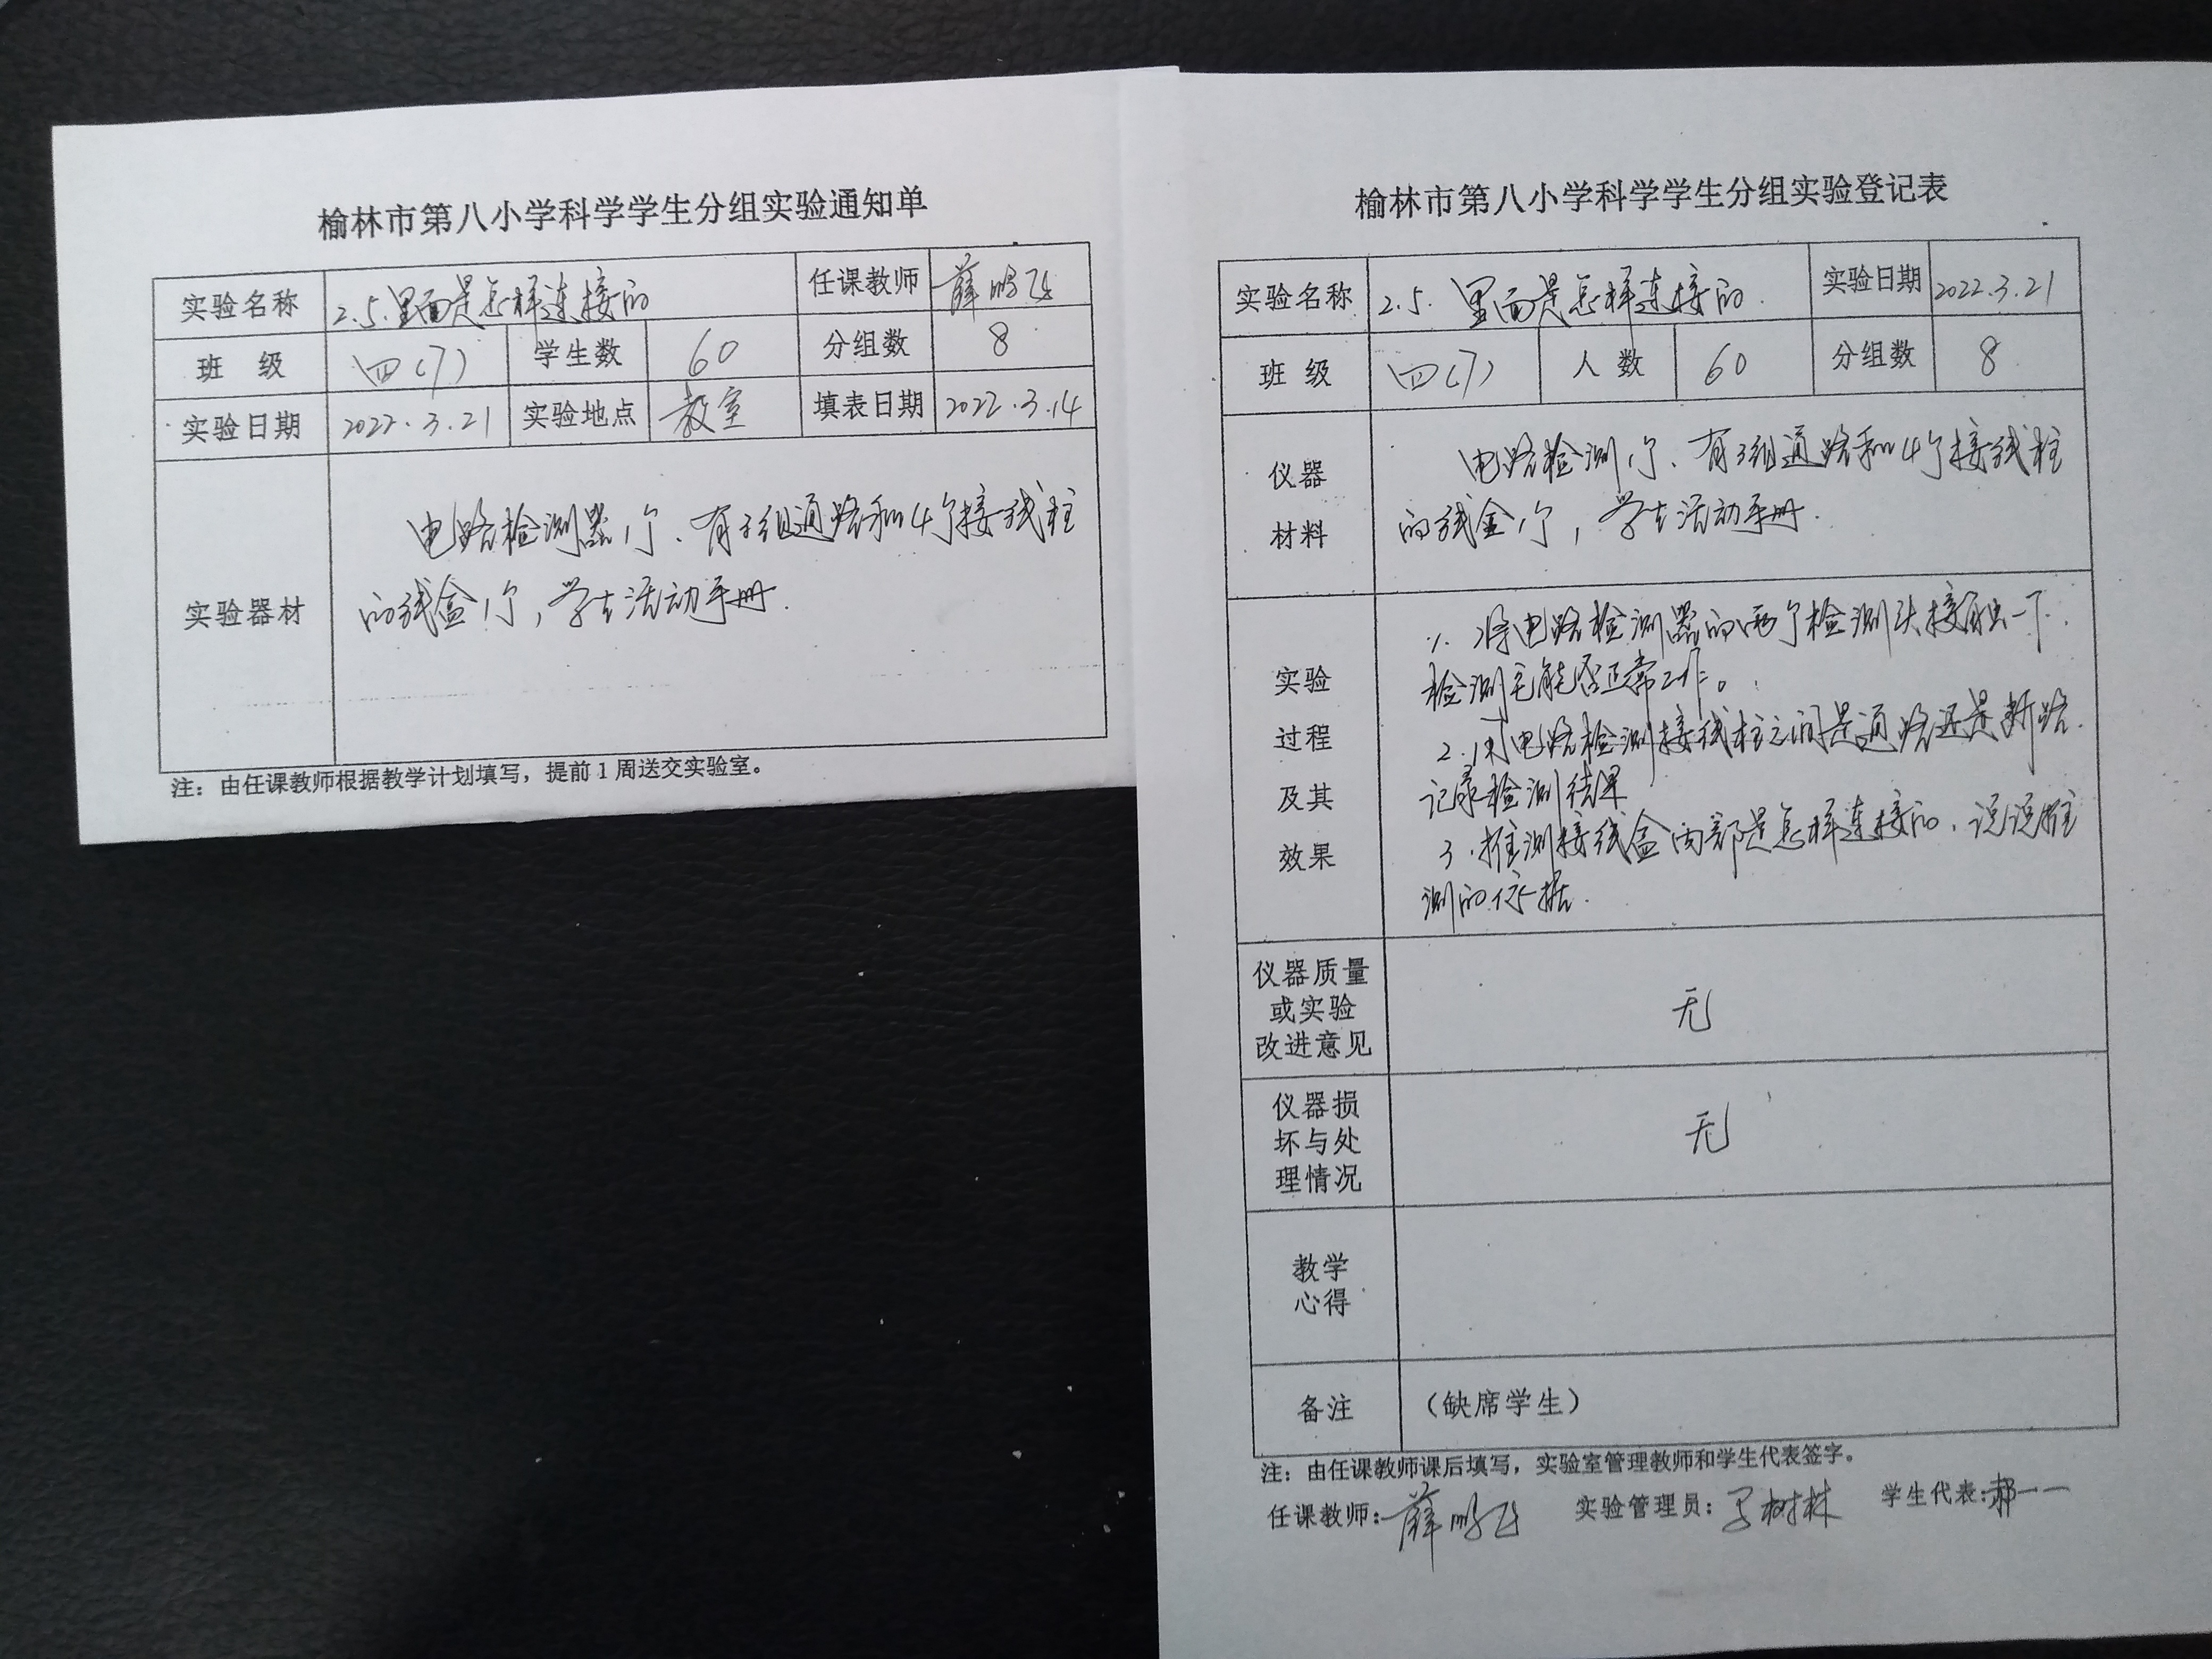 榆林市第八小学科学学生分组实验通知单
实验名称 2.5.里面是怎样连接的 任课教师 薛鹏飞
班 级 四(7) 学生数 60 分组数 8
实验日期 2022.3.21 实验地点 教室 填表日期 2022.3.14
实验器材
电路检测器1个、有3组通路和4个接线柱
的线盒1个,学生活动手册.
注：由任课教师根据教学计划填写，提前1周送交实验室。
榆林市第八小学科学学生分组实验登记表
实验名称 2.5. 里面是怎样连接的. 实验日期 2022.3.21
班 级 四(7) 人 数 60 分组数 8
仪器
材料
电路检测1个、有3组通路和4个接线柱
的线盒1个,学生活动手册.
实验
过程
及其
效果
1. 将电路检测器的两个检测头接触一下.
检测它能否正常工作。
2.用电路检测接线柱之间是通路还是断路.
记录检测结果
3.推测接线盒内部是怎样连接的.说说推
测的依据.
仪器质量
或实验
改进意见
无
仪器损
坏与处
理情况
无
教学
心得
备注 （缺席学生）
注：由任课教师课后填写，实验室管理教师和学生代表签字。
任课教师:薛鹏飞 实验管理员: 树林 学生代表:郝一一